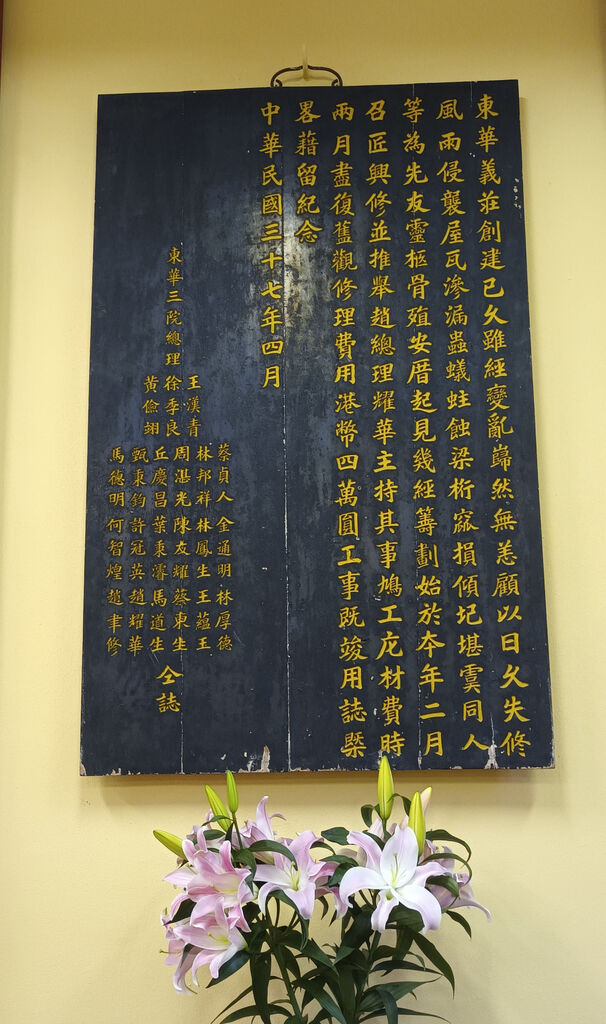 東華義莊創建已久雖經變亂巋然無恙顧以日久失修
風雨侵襲屋瓦滲漏蟲蟻蛀蝕梁桁窳損傾圮堪虞同人
等為先友靈柩骨殖安厝起見幾經籌劃始於本年二月
召匠興修並推舉趙總理耀華主持其事鳩工庀材費時
兩月盡復舊觀修理費用港幣四萬圓工事既竣用誌槩
畧藉留紀念
中華民國三十七年四月
東華三院總理
王漢青
徐季良
黃儉翊
蔡貞人 金通明 林厚德
林邦祥 林鳳生 王蘊王
周湛光 陳友耀 蔡東生
丘慶昌 葉秉濬 馬道生
甄秉鈞 許冠英 趙耀華
馬德明 何智煌 趙聿修
仝誌